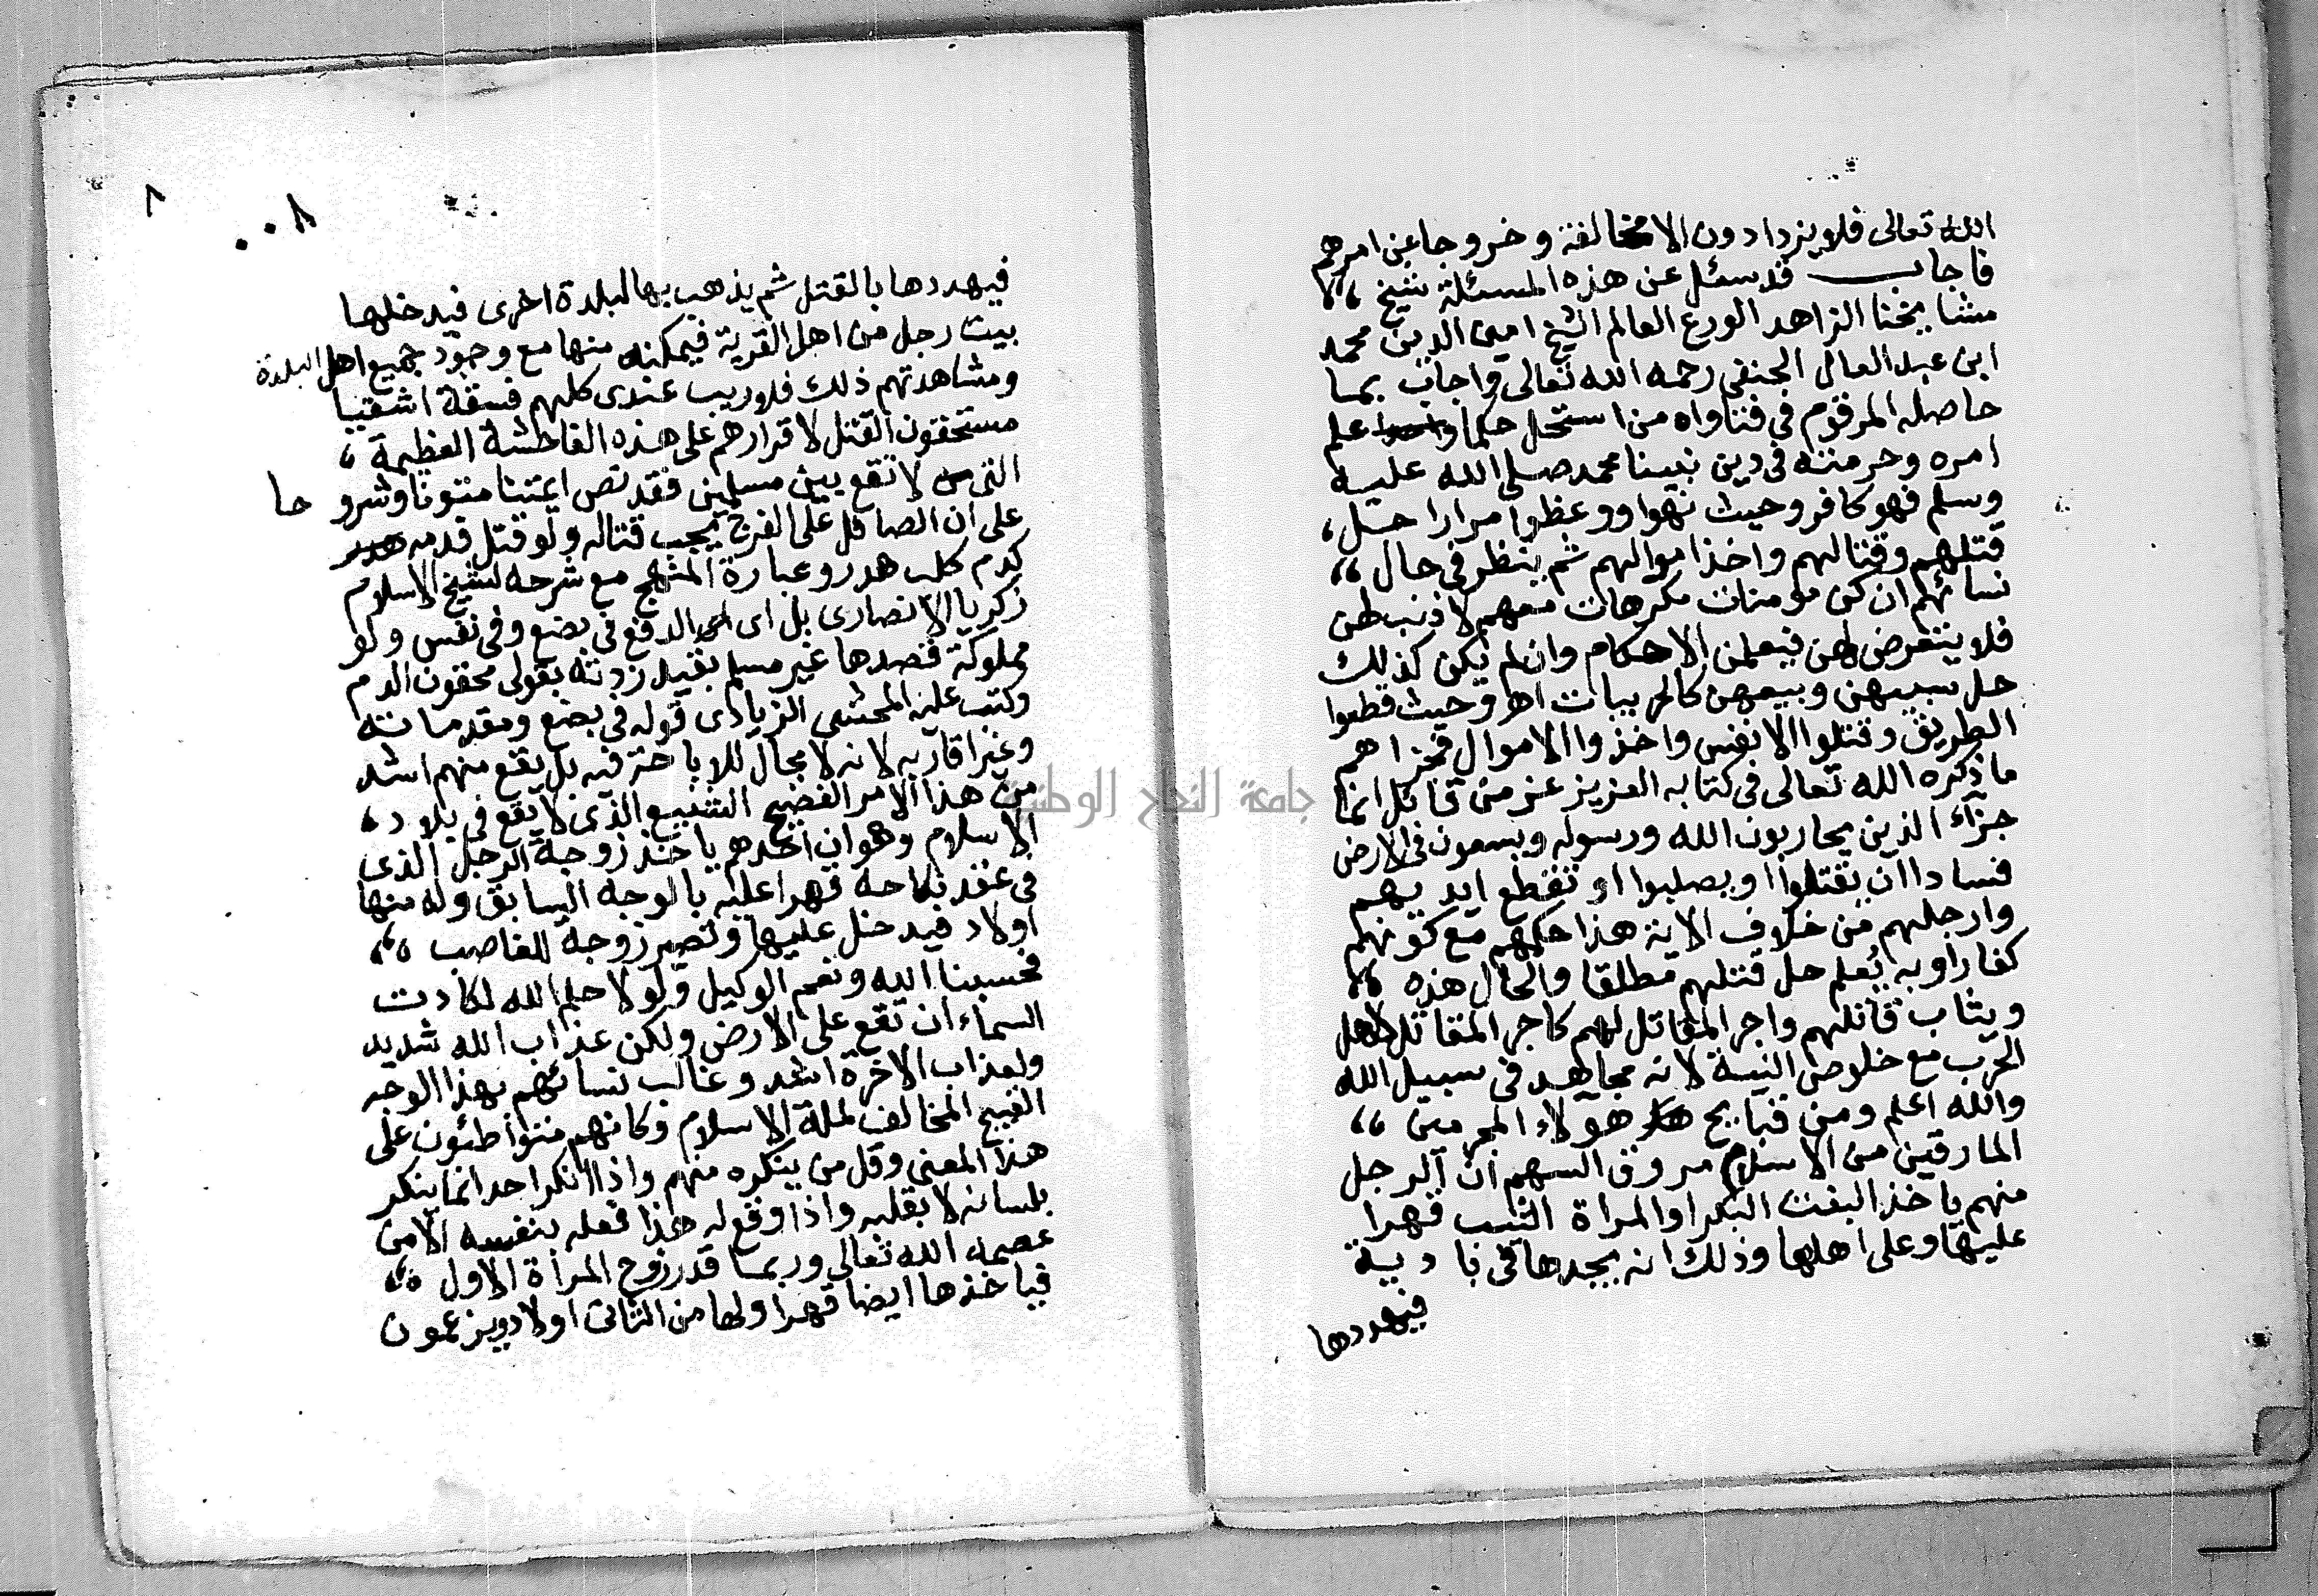 الله تعالى فلا يزدادون الا مخالفة وخروجا عن امرهم
فاجاب قد سئل عن هذه المسئلة شيخ
مشايخنا الزاهد الورع العالم الشيخ امين الدين محمد
ابن عبد العال الحنفى رحمه الله تعالى واجاب بما
حاصله المرقوم فى فتاواه من استحل حكما علم
امره وحرمته فى دين نبينا محمد صلى الله عليه
وسلم فهو كافر وحيث نهوا ووعظوا مرارا حل
قتلهم وقتالهم واخذ اموالهم ثم ينظر فى حال
نسائهم ان كن مومنات مكرهات معهم لا ذنب لهن
فلا يتعرض لهن فيعلمن الاحكام وان لم يكن كذلك
حل سبيهن وبيعهن كالحربيات اهـ وحيث قطعوا
الطريق وقتلوا الانفس واخذوا الاموال فجزاهم
ما ذكره الله تعالى فى كتابه العزيز عز من قائل انما
جزآء الذين يحاربون الله ورسوله ويسعون فى الارض
فسادا ان يقتلوا او يصلبوا او تقطع ايديهم
وارجلهم من خلاف الاية هذا حكمهم مع كونهم
كفارا وبه يُعلم حل قتلهم مطلقا والحال هذه
ويثاب قاتلهم واجر المقاتل لهم كاجر المقاتل لاهل
الحرب مع خلوص النية لانه مجاهد فى سبيل الله
والله اعلم ومن قبايح هولاء المجرمين
المارقين من الاسلام مروق السهم ان الرجل
منهم ياخذ البنت البكر او المراة الثيب قهرا
عليها وعلى اهلها وذلك انه يجدها فى بادية
فيهددها
٨ ٠٠٨
فيهددها بالقتل ثم يذهب بها لبلدة اخرى فيدخلها
بيت رجل من اهل القرية فيمكنه منها مع وجود جميع اهل البلدة
ومشاهدتهم ذلك فلا ريب عندى كلهم فسقة اشقيا
مستحقون القتل لاقرارهم على هذه الفاحشة العظيمة
التى لا تقع بين مسلمين فقد نص ايمتنا متونا وشروحا
على ان الصائل على الفرج يجب قتاله ولو قتل قدمه هدر
كدم كلب هدر وعبارة المنهج مع شرحه لشيخ الاسلام
زكريا الانصارى بل اى الدفع فى بضع وفى نفس ولو
مملوكة قصدها غير مسلم بقيد زدته بقولى محقون الدم
وكتب عليه المحشى الزيادى قوله فى بضع ومقدماته
وعزا قاربه لانه لا مجال للاباحة فيه بل يقع منهم اشد
من هذا الامر الفضيح الشنيع الذى لا يقع فى بلاد
الاسلام وهو ان احدهم ياخذ زوجة الرجل الذى
فى عقد نكاحه قهرا عليه بالوجه السابق وله منها
اولاد فيدخل عليها وتصير زوجة للغاصب
فحسبنا الله ونعم الوكيل ولولا حلم الله لكادت
السماء ان تقع على الارض ولكن عذاب الله شديد
ولعذاب الاخرة اشد وغالب نسائهم بهذا الوجه
القبيح المخالف لملة الاسلام وكانهم متواطئون على
هذا المعنى وقل من ينكره منهم واذا انكر احد انما ينكر
بلسانه لا بقلبه واذا وقع له هذا فعله بنفسه الا من
عصمه الله تعالى وربما قدر زوج المرأة الاول
فياخذها ايضا قهرا ولها من الثانى اولاد ويزعمون
جامعة النجاح الوطنية